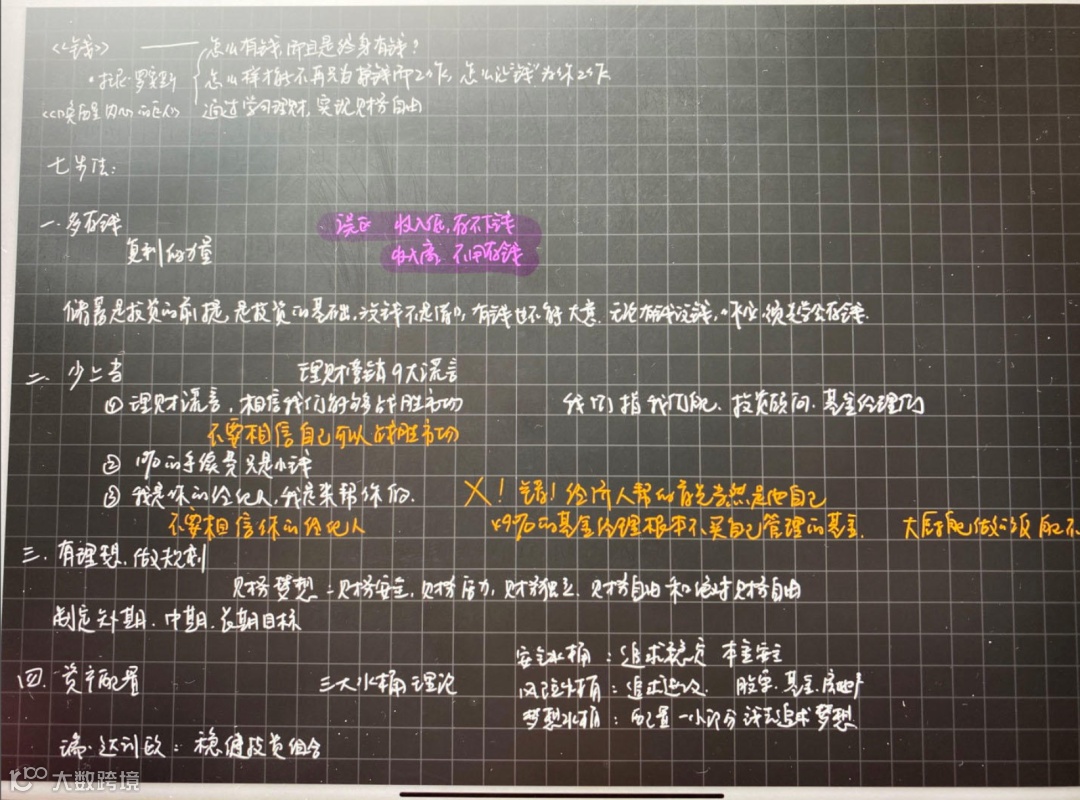 《钱》 —— 怎么有钱,而且是终身有钱?
·托尼·罗宾斯 怎么样才能不再只为挣钱而工作,怎么让"钱"为你工作
《唤醒心中的巨人》 通过学习理财,实现财务自由
七步法:
一.多存钱 误区 收入低,存不下钱
复利的力量 收入高,不用存钱
储蓄是投资的前提,是投资的基础,没钱不是借口,有钱也不能大意.无论有钱没钱,都必须先学会存钱.
二.少上当 理财营销9大谎言
① 理财谎言,相信我们能够战胜市场 我们指我们司.投资顾问.基金经理们
不要相信自己可以战胜市场
② 1%的手续费只是小钱
③ 我是你的经纪人,我是来帮你的. ×!错!经济人帮的首先当然是他自己
不要相信你的经纪人 49%的基金经理根本不买自己管理的基金. 大厨自己做的饭自己不
三.有理想.做规划
财务梦想:财务安全,财务活力,财务独立.财务自由和绝对财务自由
制定短期.中期.长期目标
安全水桶:追求稳定 本金安全
四.资产配置 三大水桶理论 风险水桶:追求进攻.股票.基金.房地产
梦想水桶:配置一小部分钱去追求梦想
瑞·达利欧:稳健投资组合
大数跨境